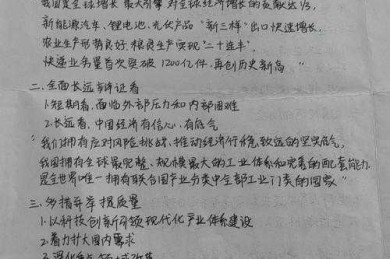 我国是全球增长最大引擎 对全球经济增长的贡献达1/3,
新能源汽车、锂电池、光伏产品"新三样"出口快速增长,
农业生产形势良好,粮食生产实现"二十连丰"
快递业务量首次突破1200亿件,再创历史新高"
二、全面长远辩证看
1.短期看,面临外部压力和内部困难
2.长远看,中国经济有信心,有底气
"我们拥有应对风险挑战、推动经济行稳致远的坚实底气,
我国拥有全球最完整、规模最大的工业体系和完善的配套能力
是全世界唯一拥有联合国产业分类中全部工业门类的国家"
三、多措并举提质量
1.以科技创新引领现代化产业体系建设
2.着力扩大国内需求
3.深化重点领域改革